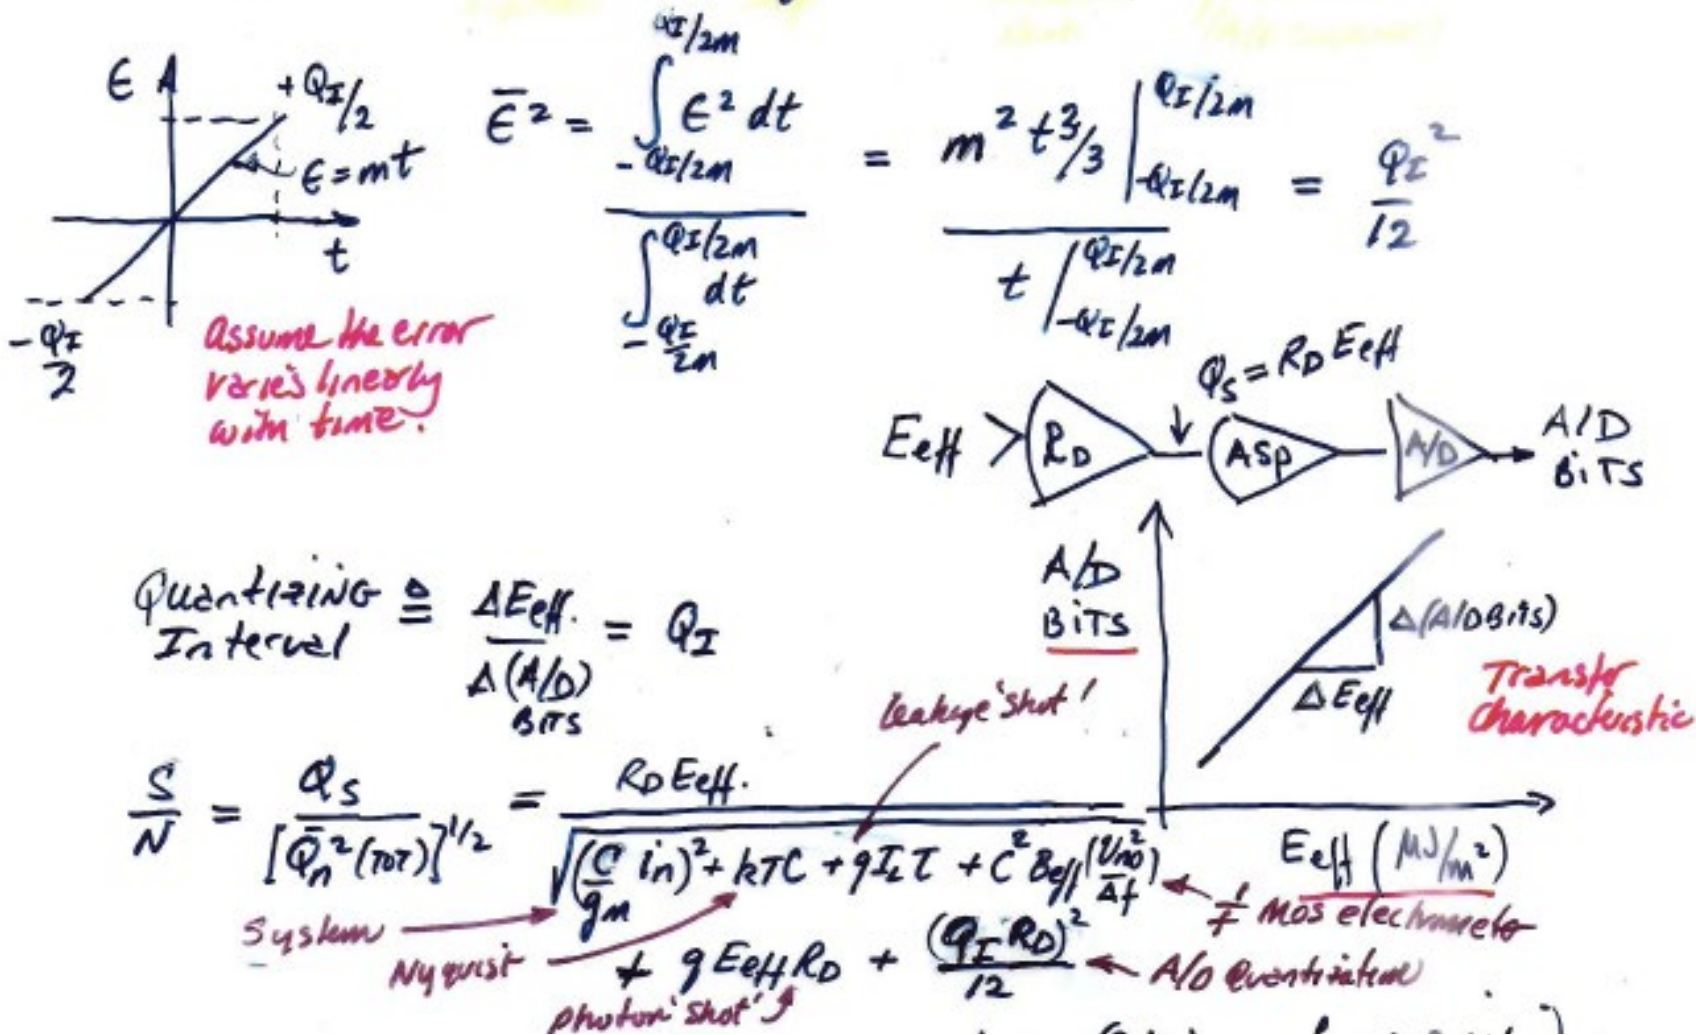 ϵ
+ Q_I/2
ϵ = mt
t
- Q_I/2
Assume the error
varies linearly
with time.
ϵ̄² = ∫_{-Q_I/2m}^{Q_I/2m} ϵ² dt / ∫_{-Q_I/2m}^{Q_I/2m} dt = m² t³/3 |_{-Q_I/2m}^{Q_I/2m} / t |_{-Q_I/2m}^{Q_I/2m} = Q_I²/12
Q_S = R_D Eeff
Eeff R_D ASP A/D A/D BITS
Quantizing Interval ≜ ΔEeff. / Δ(A/D) BITS = Q_I
A/D
BITS
Δ(A/D Bits)
ΔEeff
Transfer
characteristic
Eeff (μJ/m²)
leakage 'shot'
S/N = Q_S / [Q̄_n² (TOT)]^{1/2} = R_D Eeff. / √(C/g_m i_n)² + kTC + qI_Lτ + C² Beff (V_no²/Δf)
+ q Eeff R_D + (Q_I R_D)²/12
System
Nyquist
photon 'shot'
1/f MOS electrometer
A/D Quantization